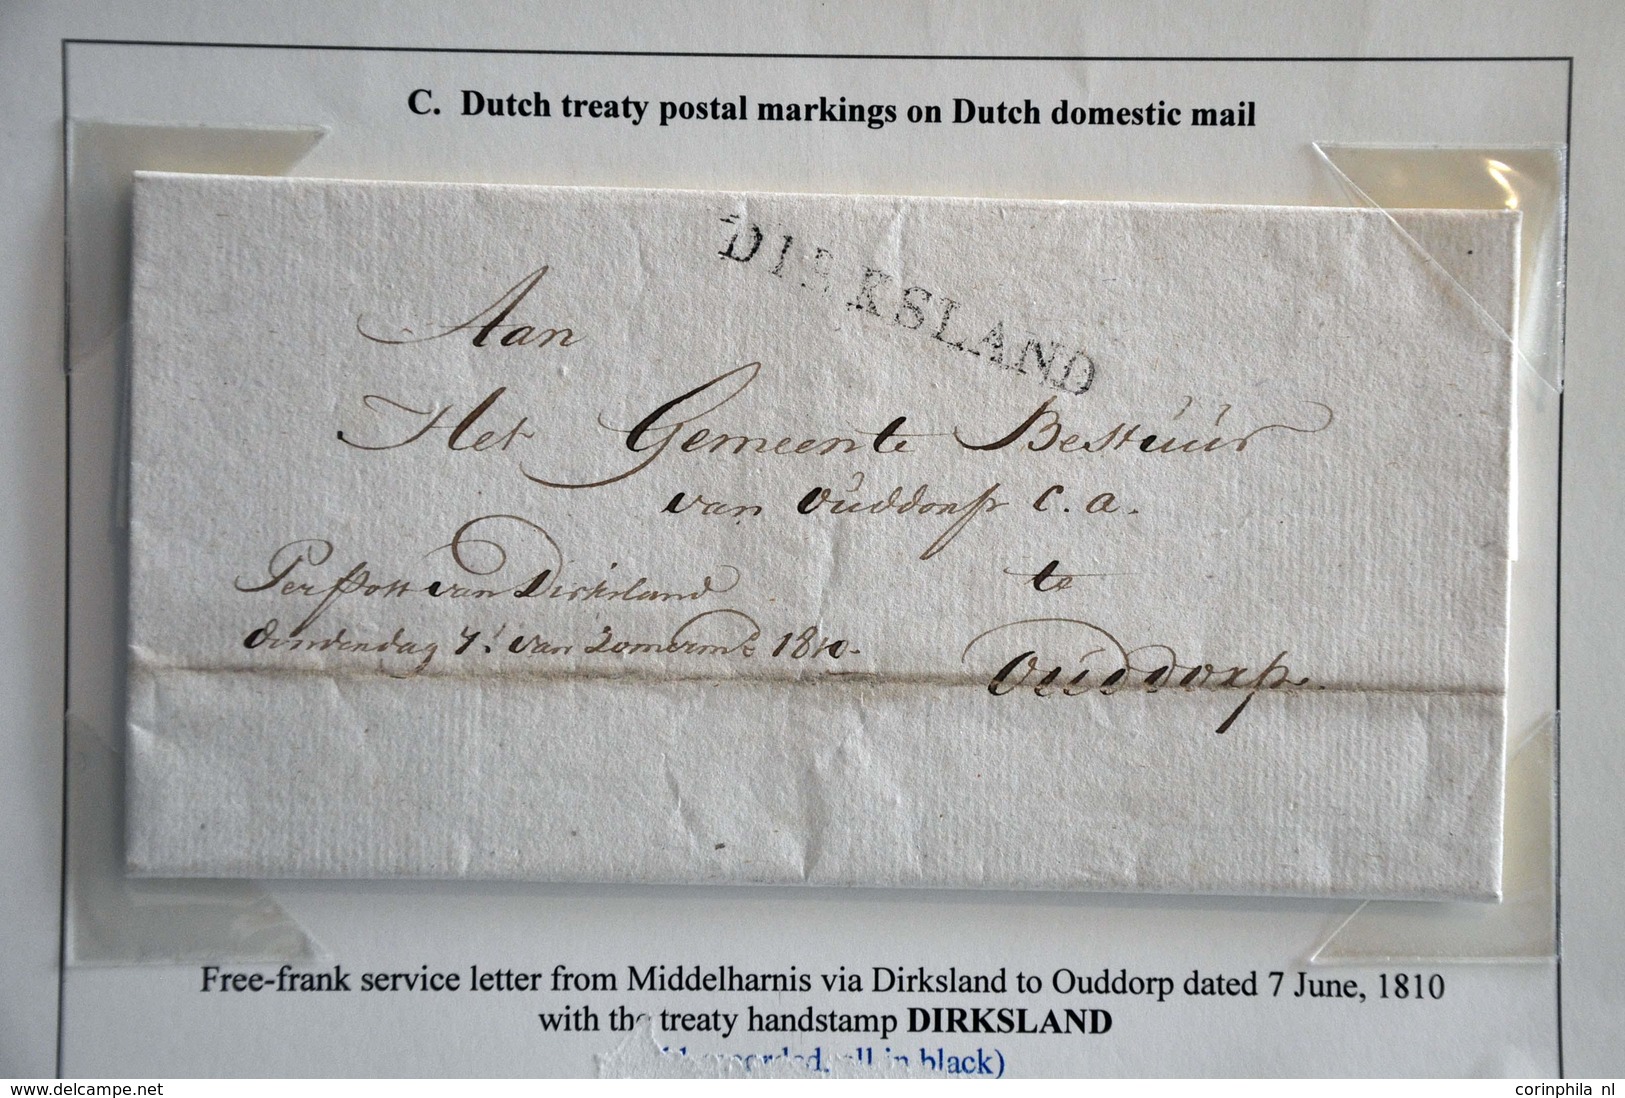 C. Dutch treaty postal markings on Dutch domestic mail
DIRKSLAND
Aan
Het Gemeente Bestuur
van Ouddorp c.a.
Per Post van Dirksland
te
donderdag 7: van Zomerm: 1810.
Ouddorp.
Free-frank service letter from Middelharnis via Dirksland to Ouddorp dated 7 June, 1810
with the treaty handstamp DIRKSLAND
in black)
www.delcampe.net
corinphila nl